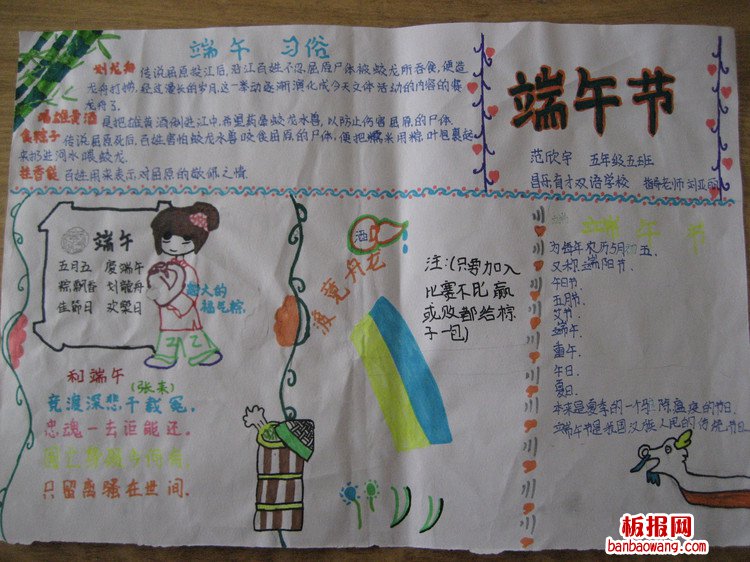 端午 习俗
划龙舟 传说屈原投江后,沿江百姓不忍屈原尸体被蛟龙所吞食,便造
龙舟打捞,经过漫长的岁月,这一举动逐渐演化成今天文体活动的内容的赛
龙舟了.
喝雄黄酒 是把雄黄酒倒进江中,希望药晕蛟龙水兽,以防止伤害屈原的尸体.
食粽子 传说屈原死后,百姓害怕蛟龙水兽咬食屈原的尸体,便把糯米用粽叶包裹起
来扔进河水喂蛟龙.
挂香袋 百姓用来表示对屈原的敬佩之情
端午节
范欣宇 五年级五班
昌乐育才双语学校 指导老师 刘亚丽
端午
五月五 庆端午
粽飘香 划龙舟
佳节日 欢聚日
超大的
福气粽.
和端午
(张耒)
竞渡深悲千载冤,
忠魂一去讵能还.
国亡身殒今何有,
只留离骚在世间.
酒
龙舟竞渡
注:(只要加入
比赛不比赢
或败都给粽
子一包)
端午节
为每年农历5月初五,
又称端阳节.
午日节.
五月节.
艾节.
端午.
重午.
午日.
夏日.
本来是夏季的一个 瘟疫的节日.
端午节是我国汉族人民的传统节日
板报网
banbaowang.com